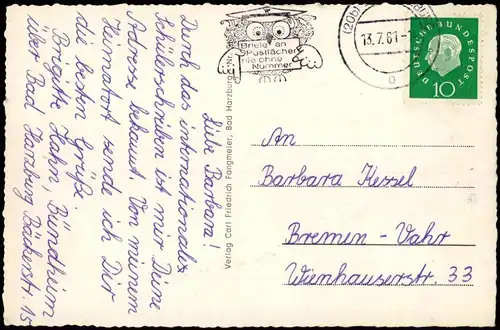 Liebe Barbara!
Durch das internationale
Schülerschreiben ist mir Deine
Adresse bekannt. Von meinem
Heimatort sende ich Dir
die besten Grüße.
Brigitte Hahn, Bündheim
über Bad Harzburg Bäckerstr. 15
Verlag Carl Friedrich Fangmeier, Bad Harzburg
Briefe an
Postfächer
nie ohne
Nummer
(20b)
13.7.61-1
DEUTSCHE BUNDESPOST
10
An
Barbara Kessel
Bremen-Vahr
Wienhauserstr. 33